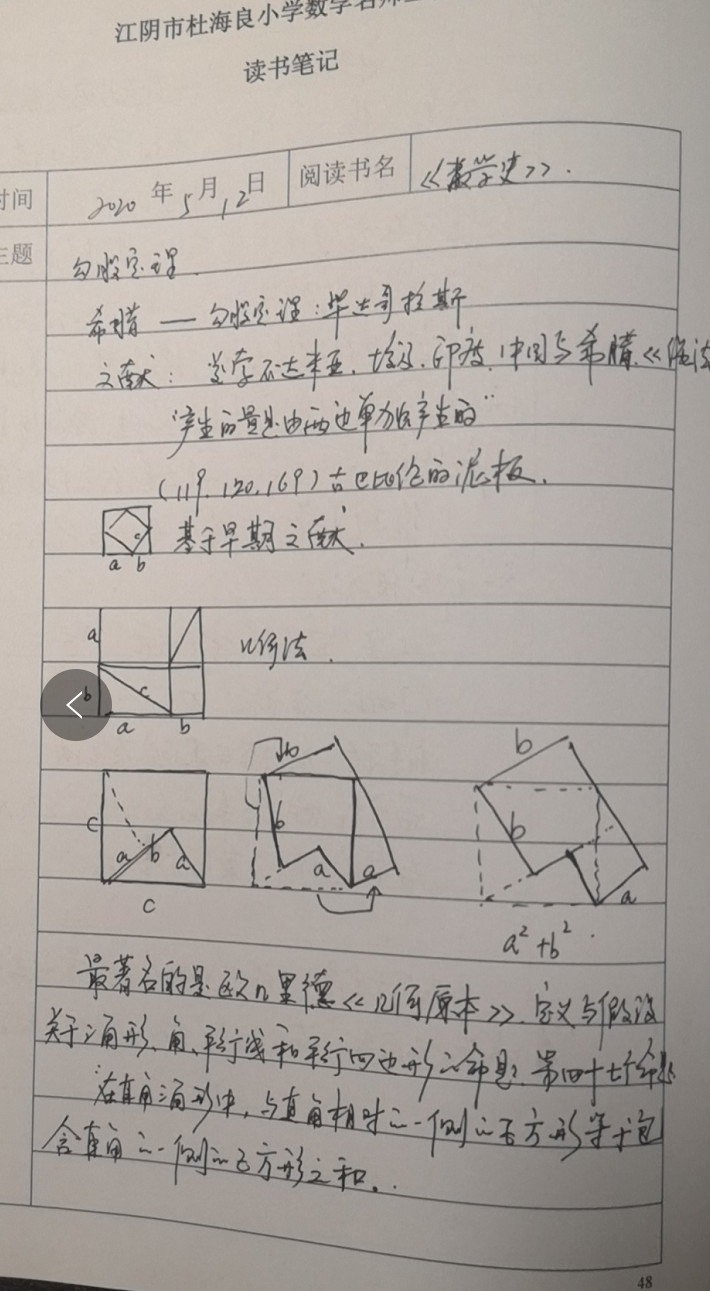 江阴市杜海良小学数学名师工
读书笔记
时间 2020 年 5 月 12 日 阅读书名 《数学史》.
主题 勾股定理.
希腊 — 勾股定理：毕达哥拉斯
文献： 美索不达米亚、埃及、印度、中国与希腊.《绳法
“产生的量是由两边单独产生的”
(119.120.169) 古巴比伦的泥板.
c 基于早期文献.
a b
a 几何法.
b c
a b
c a b a
c
b b a a
b b a
a²+b².
最著名的是欧几里德《几何原本》. 定义与假设
关于三角形、角、平行线和平行四边形之命题；第四十七个命题
在直角三角形中，与直角相对之一侧之正方形等于包
含直角之一侧之正方形之和。
48